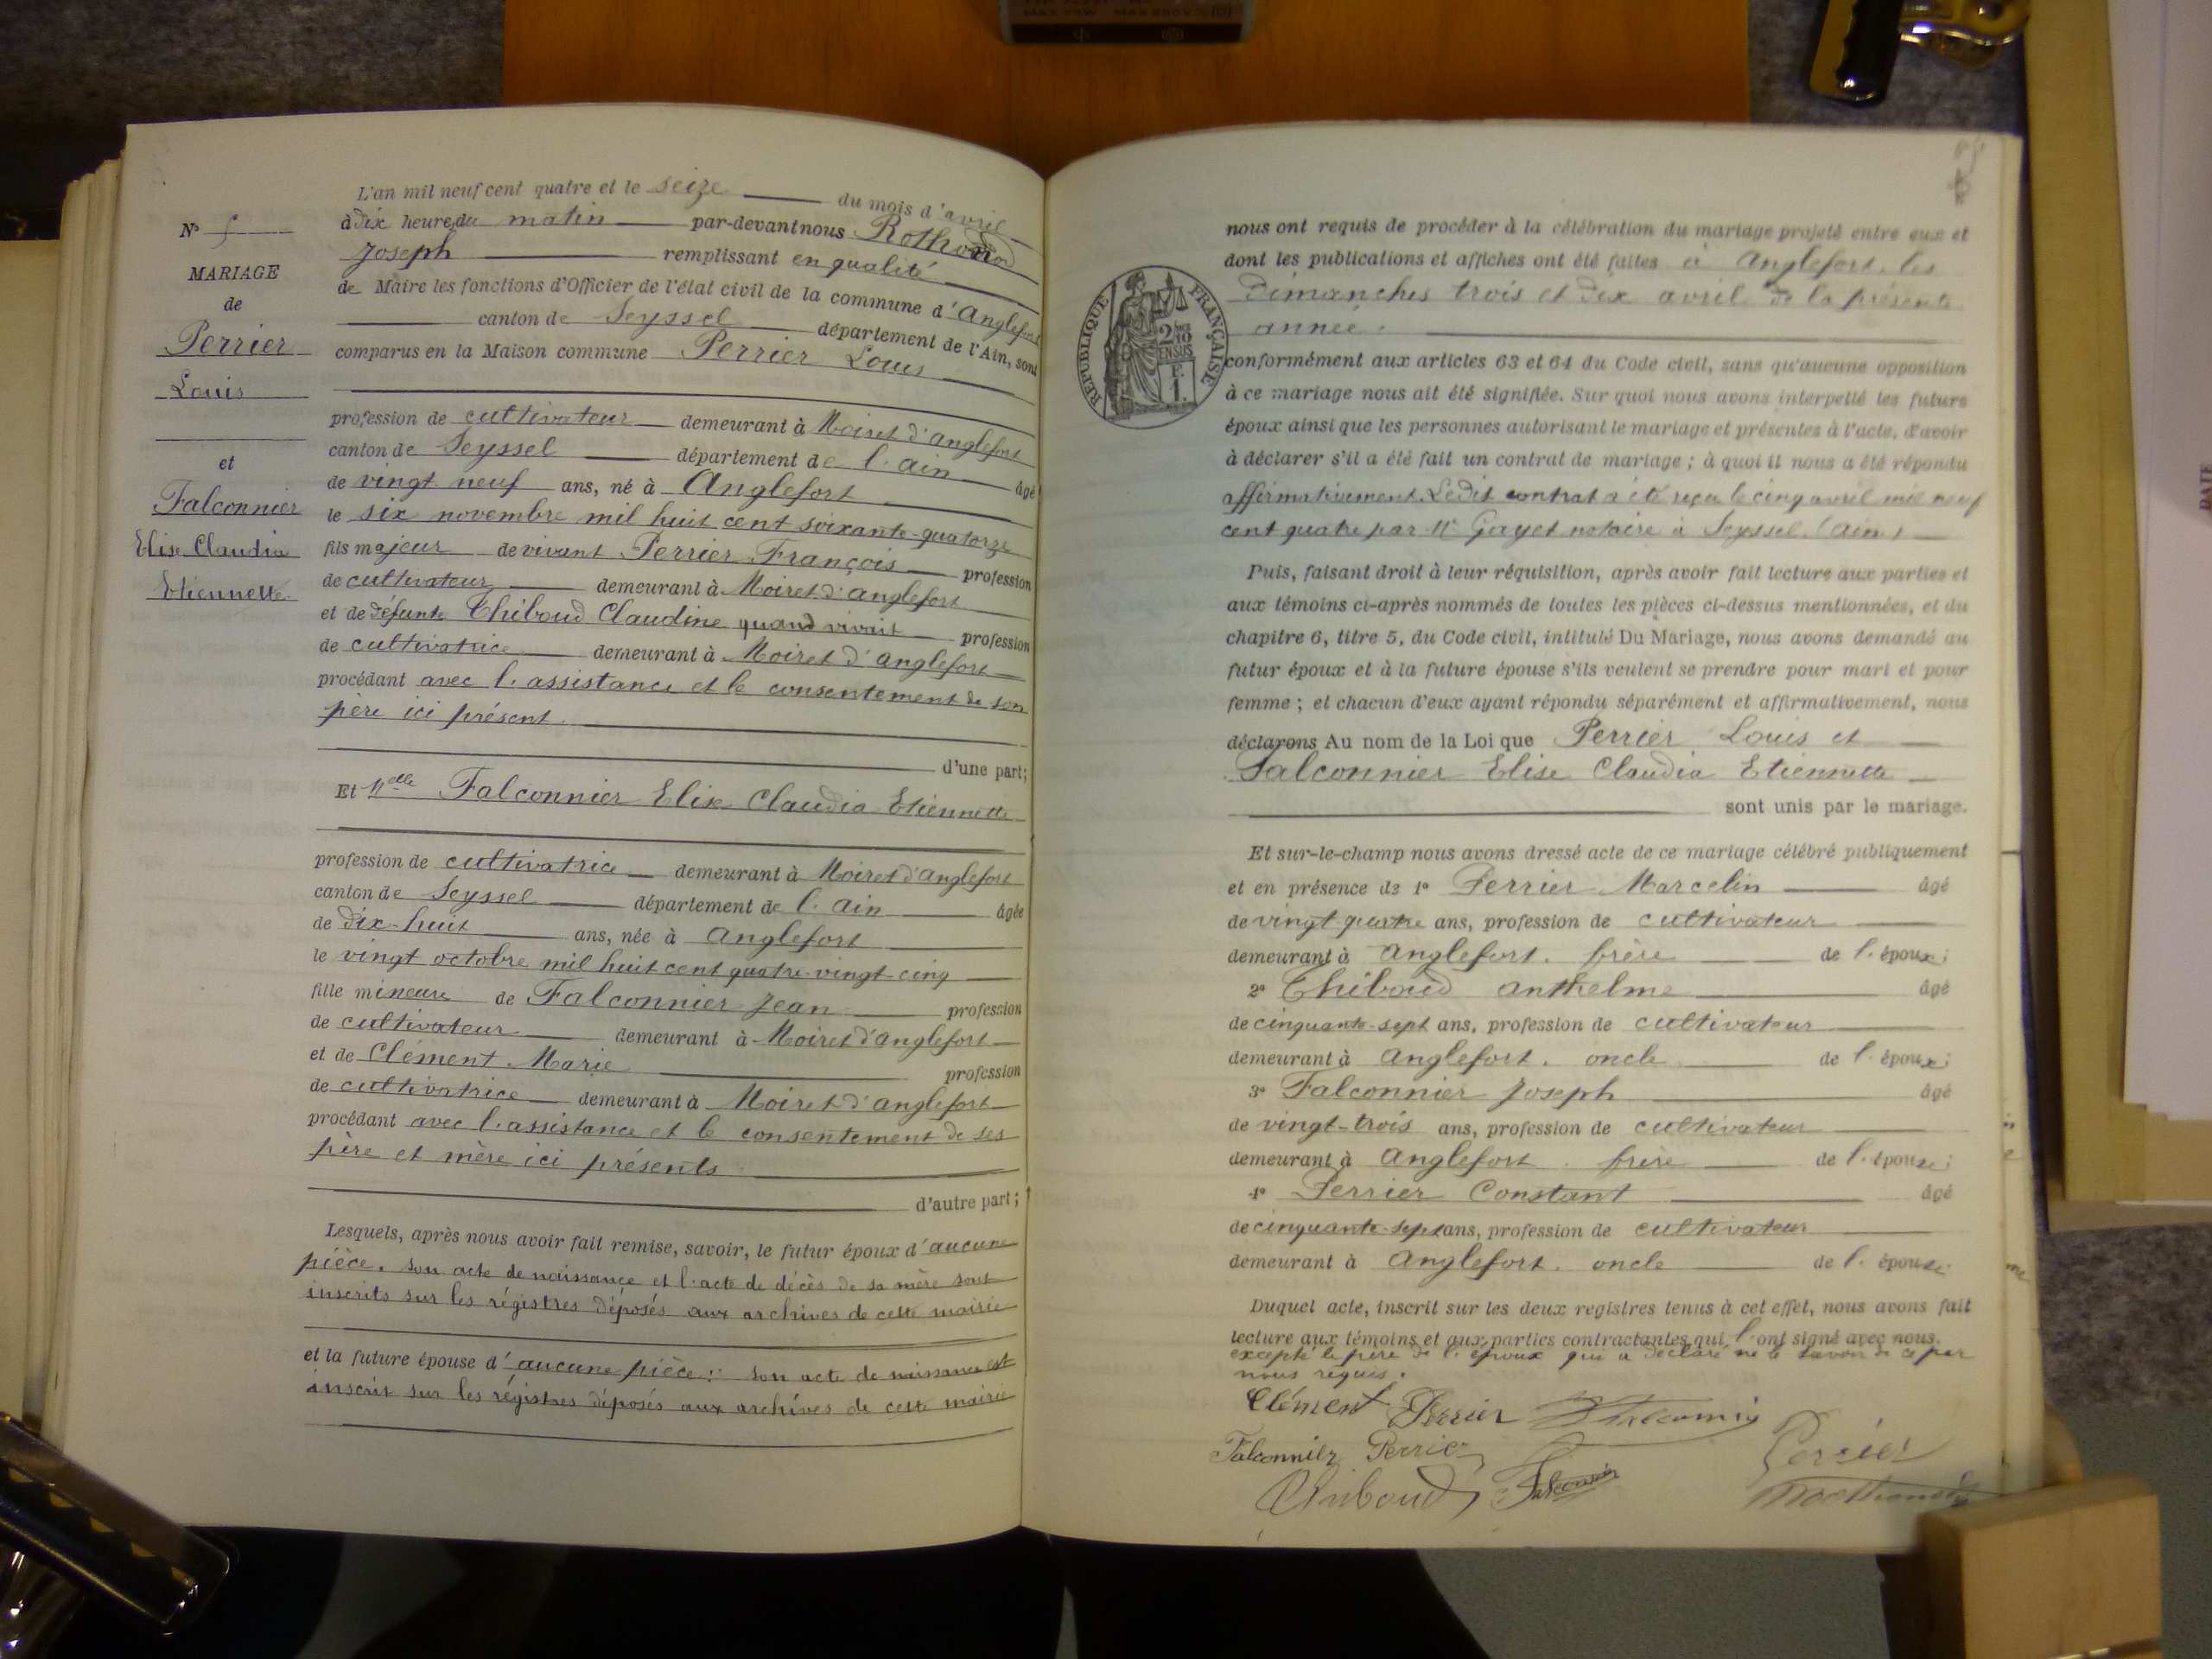 N° 5
MARIAGE
de
Perrier
Louis
et
Falconnier
Elise Claudia
Etiennette
L'an mil neuf cent quatre et le seize du mois d'avril
à dix heures du matin par-devant nous Rothonod
Joseph remplissant en qualité
de Maire les fonctions d'Officier de l'état civil de la commune d'Anglefort
canton de Seyssel département de l'Ain, sont
comparus en la Maison commune Perrier Louis
profession de cultivateur demeurant à Moiret d'anglefort
canton de Seyssel département de l'ain âgé
de vingt neuf ans, né à Anglefort
le six novembre mil huit cent soixante-quatorze
fils majeur de vivant Perrier François profession
de cultivateur demeurant à Moiret d'anglefort
et de défunte Thiboud Claudine quand vivait profession
de cultivatrice demeurant à Moiret d'anglefort
procédant avec l'assistance et le consentement de son
père ici présent.
d'une part;
Et Melle Falconnier Elise Claudia Etiennette
profession de cultivatrice demeurant à Moiret d'anglefort
canton de Seyssel département de l'ain âgée
de dix-huit ans, née à anglefort
le vingt octobre mil huit cent quatre-vingt-cinq
fille mineure de Falconnier Jean profession
de cultivateur demeurant à Moiret d'anglefort
et de Clément Marie profession
de cultivatrice demeurant à Moiret d'anglefort
procédant avec l'assistance et le consentement de ses
père et mère ici présents.
d'autre part;
Lesquels, après nous avoir fait remise, savoir, le futur époux d'aucune
pièce. son acte de naissance et l'acte de décès de sa mère sont
inscrits sur les régistres déposés aux archives de cette mairie
et la future épouse d'aucune pièce: son acte de naissance est
inscrit sur les régistres déposés aux archives de cette mairie
nous ont requis de procéder à la célébration du mariage projeté entre eux et
dont les publications et affiches ont été faites à Anglefort, les
dimanches trois et dix avril de la présente
année.
RÉPUBLIQUE FRANÇAISE
2/10
EN SUS
F.
1.
conformément aux articles 63 et 64 du Code civil, sans qu'aucune opposition
à ce mariage nous ait été signifiée. Sur quoi nous avons interpellé les futurs
époux ainsi que les personnes autorisant le mariage et présentes à l'acte, d'avoir
à déclarer s'il a été fait un contrat de mariage ; à quoi il nous a été répondu
affirmativement. Ledit contrat a été reçu le cinq avril mil neuf
cent quatre par Me Gayet notaire à Seyssel (ain)
Puis, faisant droit à leur réquisition, après avoir fait lecture aux parties et
aux témoins ci-après nommés de toutes les pièces ci-dessus mentionnées, et du
chapitre 6, titre 5, du Code civil, intitulé Du Mariage, nous avons demandé au
futur époux et à la future épouse s'ils veulent se prendre pour mari et pour
femme ; et chacun d'eux ayant répondu séparément et affirmativement, nous
déclarons Au nom de la Loi que Perrier Louis et
Falconnier Elise Claudia Etiennette
sont unis par le mariage.
Et sur-le-champ nous avons dressé acte de ce mariage célébré publiquement
et en présence de 1° Perrier Marcelin âgé
de vingt-quatre ans, profession de cultivateur
demeurant à Anglefort. frère de l'époux;
2° Thiboud anthelme âgé
de cinquante-sept ans, profession de cultivateur
demeurant à Anglefort. oncle de l'époux;
3° Falconnier Joseph âgé
de vingt-trois ans, profession de cultivateur
demeurant à Anglefort. frère de l'épouse;
4° Perrier Constant âgé
de cinquante-sept ans, profession de cultivateur
demeurant à Anglefort. oncle de l'épouse.
Duquel acte, inscrit sur les deux registres tenus à cet effet, nous avons fait
lecture aux témoins et aux parties contractantes qui l'ont signé avec nous.
excepté le père de l'époux qui a déclaré ne le savoir de ce par
nous requis.
Clément Perrier Falconnier
Falconnier Perrier Perrier
Thiboud Falconnier Rothonod
DATE